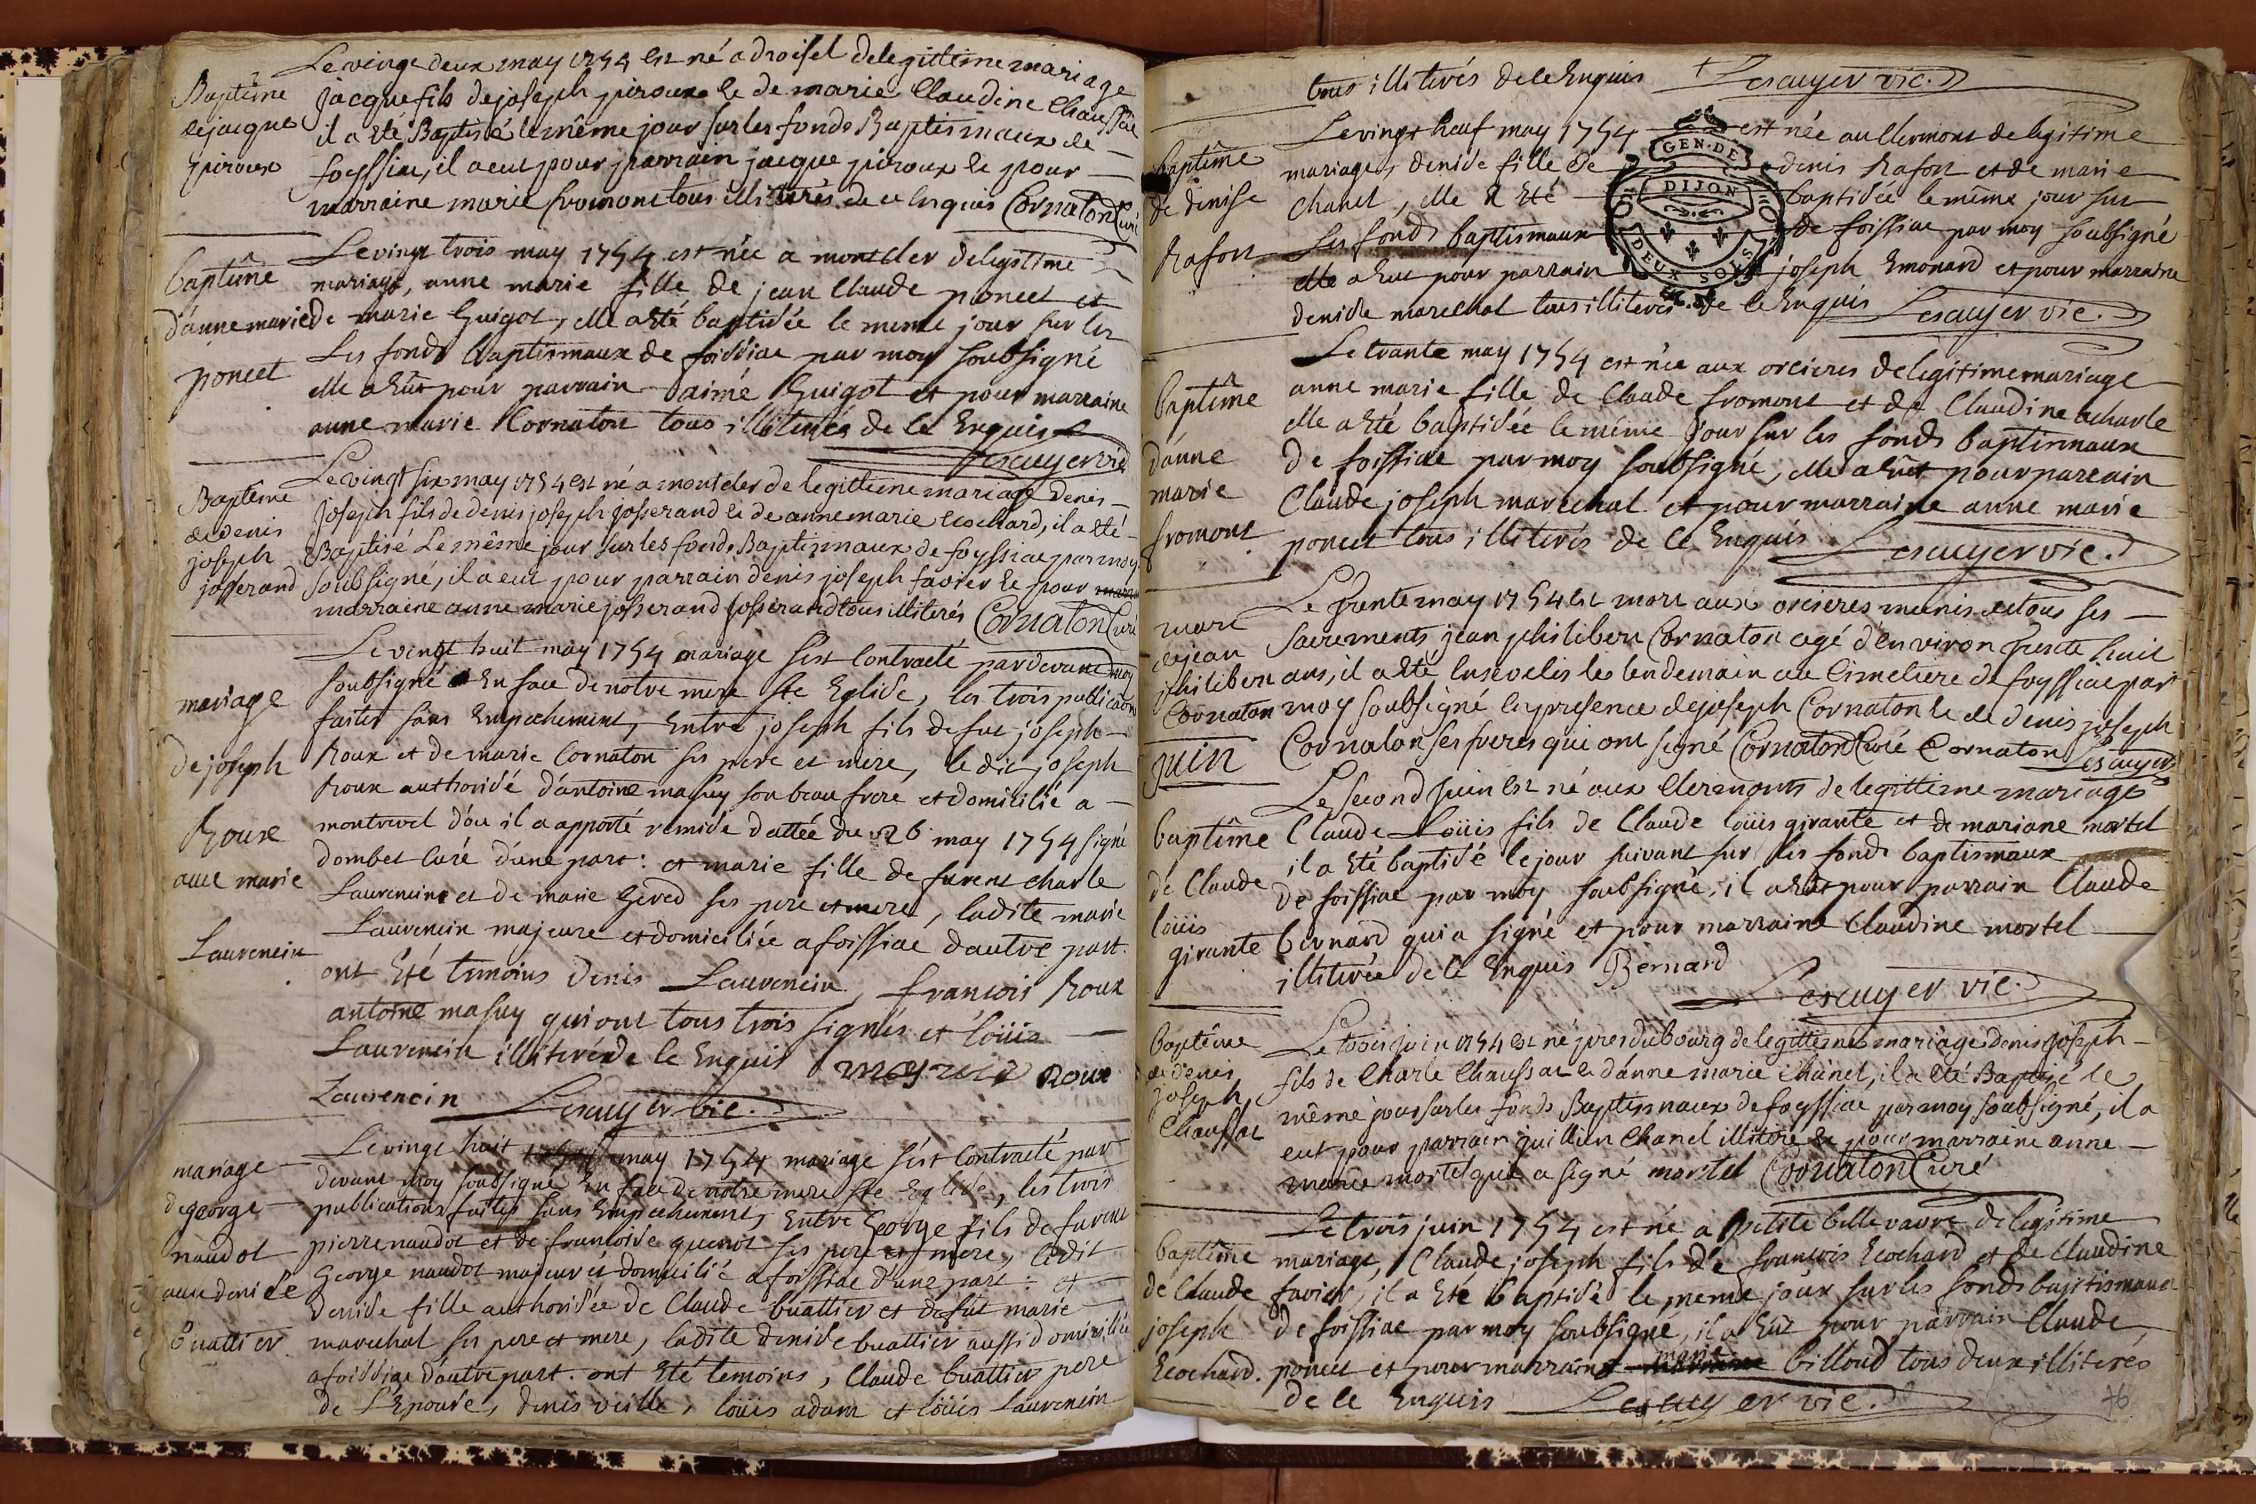 Baptême
de jacque
piroux
Le vingt deux may 1754 est né a droisel de legittime mariage
jacque fils de joseph piroux & de marie Claudine
il a eté Baptisé le même jour sur les fonds Baptismaux de
foyssiac, il a eut pour parrain jacque piroux & pour
marraine marie fromont tous illiterés de ce Enquis Cornaton Curé
baptême
d'anne marie
poncet
Le vingt trois may 1754 est née a montcler de legitime
mariage, anne marie fille de jean Claude poncet et
de marie Guigot, elle a eté baptisée le meme jour sur les
Les fonds baptismaux de foissiac par moy soubsigné
elle a eut pour parrain aimé Guigot et pour marraine
anne marie Cornaton tous illiterés de ce Enquis
Lescuyer vic.
Baptême
de denis
joseph
josserand
Le vingt six may 1754 est né a montcler de legittime mariage denis
joseph fils de denis joseph josserand & de anne marie Ecochard, il a eté
Baptisé Le même jour sur les fonds Baptismaux de foyssiac par moy
soubsigné, il a eut pour parrain denis joseph favier & pour
marraine anne marie josserand josserand tous illiterés Cornaton Curé
mariage
de joseph
Roux
avec marie
Laurencin
Le vingt huit may 1754 mariage s'est Contracté pardevant moy
soubsigné En face de notre mere ste Eglise, les trois publications
faites sans Empechement, Entre joseph fils de fut joseph
Roux et de marie Cornaton ses pere et mere, le dit joseph
Roux authorisé d'antoine masuy son beau frere et domicilié a
montrevel d'ou il a apporté remise dattée du 26 may 1754 signé
dombet Curé d'une part: et marie fille de furent charle
Laurencin et de marie Gered ses pere et mere, ladite marie
Laurencin majeure et domiciliée a foissiac d'autre part.
ont eté temoins denis Laurencin, françois Roux
antoine masuy qui ont tous trois signés et loüis
Laurencin illiteré de ce Enquis Roux
Laurencin Lescuyer vic.
mariage
de george
naudot
avec denise
buattier
Le vingt huit may 1754 mariage s'est Contracté par
devant moy soubsigné En face de notre mere ste Eglise, les trois
publications faites sans Empechement, Entre George fils de furent
pierre naudot et de francoise quenot ses pere et mere, ledit
George naudot majeur et domicilié a foissiac d'une part: et
denise fille authorisée de Claude buattier et de fut marie
marechal ses pere et mere, ladite denise buattier aussi domiciliée
a foissiac d'autre part. ont eté temoins, Claude buattier pere
de L'Epouse, denis veille, loüis adam et loüis Laurencin
tous illiterés de ce Enquis Lescuyer vic.
GEN. DE
DIJON
DEUX SOLS
baptême
de denise
Rafon
Le vingt neuf may 1754 est née au Clermont de legitime
mariage, denise fille de denis Rafon et de marie
Chanel, elle a eté baptisée le même jour sur
Les fonds baptismaux de foissiac par moy soubsigné
elle a eut pour parrain joseph Emonard et pour marraine
denise marechal tous illiterés de ce Enquis Lescuyer vic.
baptême
d'anne
marie
fromont
Le trante may 1754 est née aux orcieres de legitime mariage
anne marie fille de Claude fromont et de Claudine acharle
elle a eté baptisée le même jour sur les fonds baptismaux
de foissiac par moy soubsigné, elle a eut pour parrain
Claude joseph marechal et pour marraine anne marie
poncet tous illiterés de ce Enquis Lescuyer vic.
mort
de jean
philibert
Cornaton
Le trente may 1754 est mort aux orcieres munis de tous ses
sacrements jean philibert Cornaton agé d'environ trente huit
ans, il a eté Ensevelis le lendemain au Cimetiere de foyssiac par
moy soubsigné En presence de joseph Cornaton & de denis joseph
Cornaton ses freres qui ont signé Cornaton Curé Cornaton Lescuyer
juin
baptême
de Claude
loüis
girante
Le second juin est né aux Clermonts de legittime mariage
Claude Loüis fils de Claude loüis girante et de mariane mortel
il a eté baptisé le jour suivant sur les fonds baptismaux
de foissiac par moy soubsigné, il a eut pour parrain Claude
bernard qui a signé et pour marraine Claudine mortel
illiterée de ce Enquis Bernard
Lescuyer vic.
baptême
de denis
joseph
Chaussat
Le trois juin 1754 est né pres du bourg de legittime mariage denis joseph
fils de Charle Chaussat & d'anne marie Chanel, il a eté Baptisé le
même jour sur les fonds Baptismaux de foyssiac par moy soubsigné, il a
eut pour parrain juillien Chanel illiteré & pour marraine anne
marie mortel qui a signé mortel Cornaton Curé
baptême
de Claude
joseph
Ecochard.
Le trois juin 1754 est né a petite bellevavre de legitime
mariage, Claude joseph fils de françois Ecochard et de Claudine
favier, il a eté baptisé le meme jour sur les fonds baptismaux
de foissiac par moy soubsigné, il a eut pour parrain Claude
poncet et pour marraine marie billoud tous deux illiterés
de ce Enquis Lescuyer vic.
76